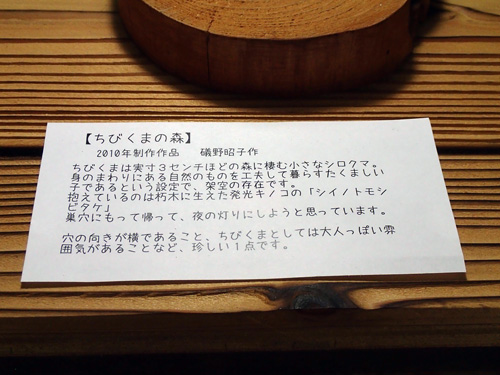 【ちびくまの森】
2010年制作作品 磯野昭子作
ちびくまは実寸3センチほどの森に棲む小さなシロクマ。
身のまわりにある自然のものを工夫して暮らすたくましい
子であるという設定で、架空の存在です。
抱えているのは朽木に生えた発光キノコの「シイノトモシ
ビタケ」
巣穴にもって帰って、夜の灯りにしようと思っています。
穴の向きが横であること、ちびくまとしては大人っぽい雰
囲気があることなど、珍しい1点です。